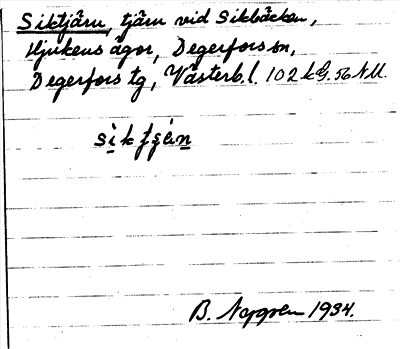 Siktjärn, tjärn vid Sikbäcken,
Hjukens ägor, Degerfors sn,
Degerfors tg, Västerb. l. 102 kG. 56 NU.
B. Nygren 1934.